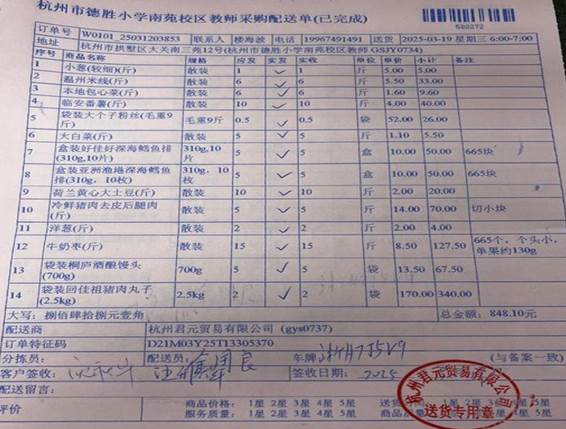 杭州市德胜小学南苑校区教师采购配送单(已完成)
580272
订单号 W0101_25031203853 联系人 楼海波 电话 19967491491 送货 2025-03-19 星期三 6:00-7:00
地址 杭州市拱墅区大关南三苑12号(杭州市德胜小学南苑校区教师 GSJY0734)
序号 商品名称 规格 应发 实发 实收 单位 单价 小计 备注
1 小葱(较细)(斤) 散装 1 ✓ 1 斤 5.00 5.00
2 温州米线(斤) 散装 6 ✓ 6 斤 5.50 33.00
3 本地包心菜(斤) 散装 6 ✓ 6 斤 1.60 9.60
4 临安番薯(斤) 散装 10 ✓ 10 斤 4.00 40.00
5 袋装大个子粉丝(毛重9斤) 毛重9斤 0.5 ✓ 0.5 袋 52.00 26.00
6 大白菜(斤) 散装 5 ✓ 5 斤 1.10 5.50
7 盒装好佳好深海鳕鱼排(310g,10片) 310g,10片 5 ✓ 5 盒 10.00 50.00 665块
8 盒装亚洲渔港深海鳕鱼排(310g，10枚) 310g，10枚 5 ✓ 5 盒 10.00 50.00 665块
9 荷兰黄心大土豆(斤) 散装 10 ✓ 10 斤 2.00 20.00
10 冷鲜猪肉去皮后腿肉(斤) 散装 5 ✓ 5 斤 14.00 70.00 切小块
11 洋葱(斤) 散装 2 ✓ 2 斤 2.00 4.00
12 牛奶枣(斤) 散装 15 ✓ 15 斤 8.50 127.50 665个，个头小，单果约130g
13 袋装桐庐酒酿馒头(700g) 700g 5 ✓ 5 袋 13.50 67.50
14 袋装回佳祖猪肉丸子(2.5kg) 2.5kg 2 ✓ 2 袋 170.00 340.00
大写：捌佰肆拾捌元壹角 总金额：848.10元
配送商 杭州君元贸易有限公司 (gys0737)
订单特征码 D21M03Y25T13305370
分拣员： 车牌 (与备案一致)
客户签收： 签收日期： 2025
配送留言：
评价 商品价格：1星 2星 3星 4星 5星
服务质量：1星 2星 3星 4星 5星
杭州君元贸易有限公司
送货专用章